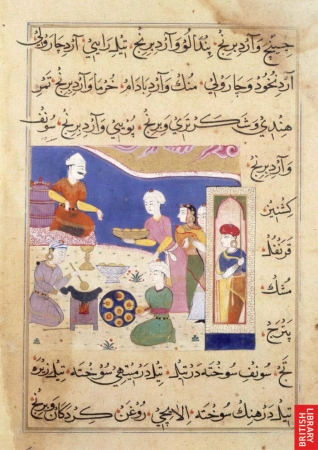 و آرد برنج پندالو و آرد برنج تیل رایی آرد چارولی
آرد نخود و چارولی مشک و آرد بادام خرما و آرد برنج تمر
هندی و شکر تری و برنج پویی و آرد برنج سونف
و آرد برنج
کشنیز
قرنفل
مشک
پترج
تج سونف سوخته در تیل تیل در میتهی سوخته تیل زیره
تیل در هنگ سوخته الاچی روغن کردگان و برنج
BRITISH
LIBRARY